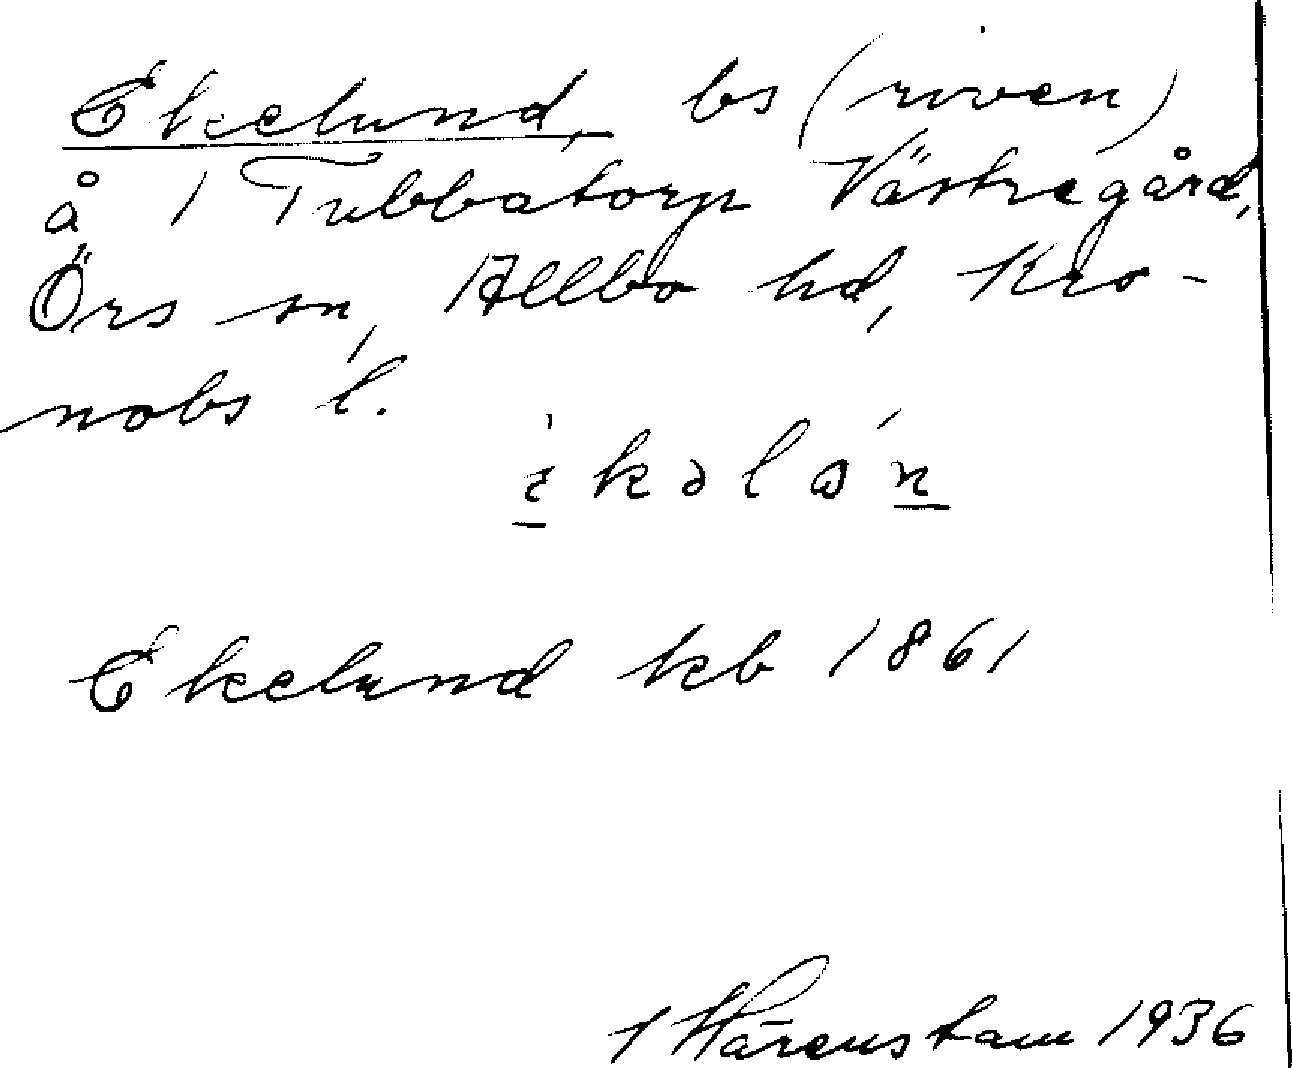 Ekelund, bs (riven)
å 1 Tubbatorp Västregård,
Örs sn, Allbo hd, Kro-
nobs l.
Ekelund kb 1861
Härenstam 1936